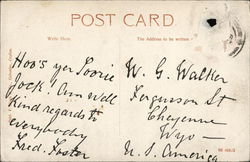 POST CARD
Write Here.
The Address to be written
Hoo's yer Soorie
Jock! Am well
Kind regards to
everybody
Fred. Foster
W. G. Walker
Fergusson St
Cheyenne
Wyo —
U. S. America